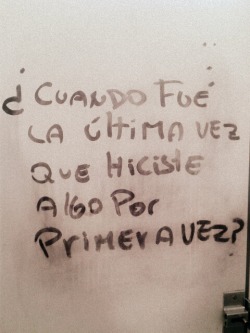 ¿CUANDO FUÉ
LA ÚLTIMA VEZ
QUE HICISTE
ALGO POR
PRIMERA VEZ?